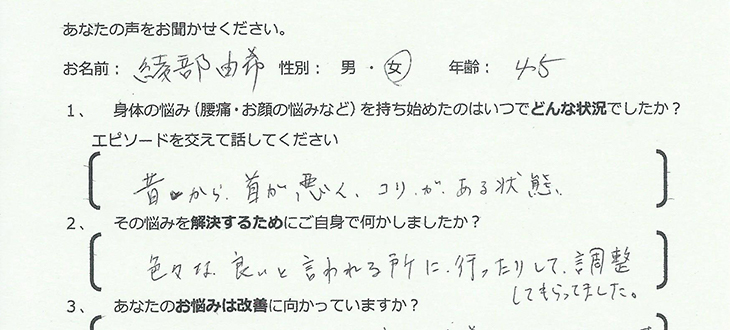 あなたの声をお聞かせください。
お名前： 綾部由希 性別： 男 ・ 女 年齢： 45
1、 身体の悩み（腰痛・お顔の悩みなど）を持ち始めたのはいつでどんな状況でしたか？
エピソードを交えて話してください
昔から、首が悪く、コリがある状態、
2、 その悩みを解決するためにご自身で何かしましたか？
色々な良いと言われる所に、行ったりして、調整
してもらってました。
3、 あなたのお悩みは改善に向かっていますか？